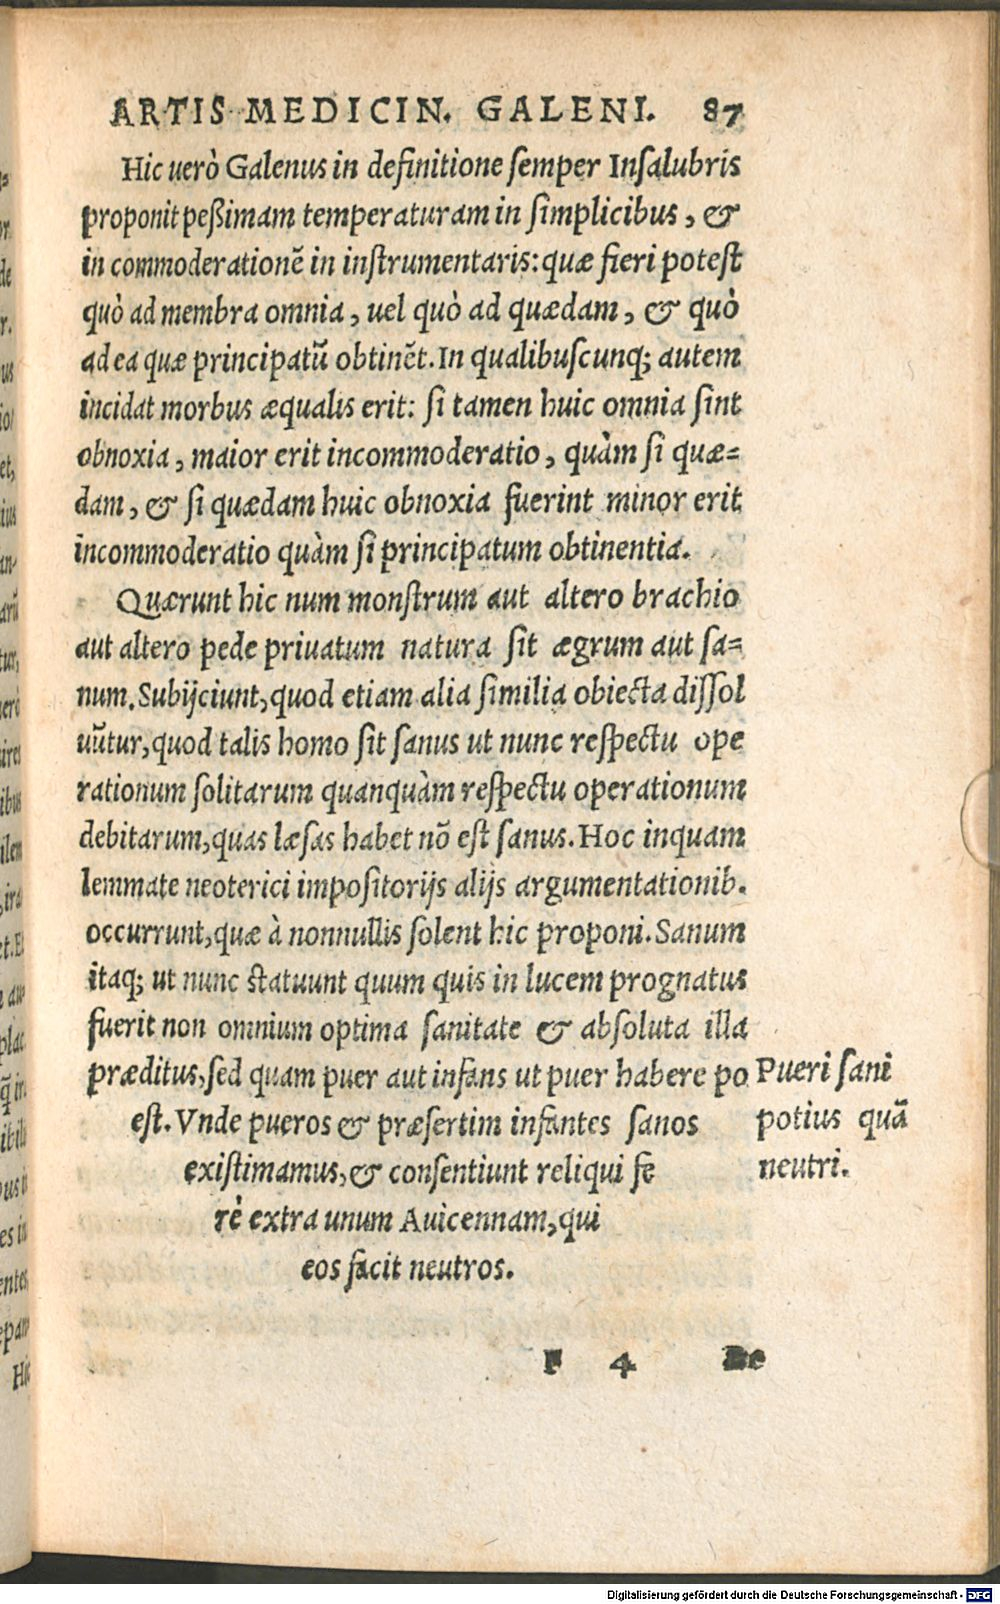 ARTIS MEDICIN. GALENI. 87
Hic uerò Galenus in definitione ſemper Inſalubris
proponit peßimam temperaturam in ſimplicibus, &
in commoderationē in inſtrumentaris: quæ fieri poteſt
quò ad membra omnia, uel quò ad quædam, & quò
ad ea quæ principatū obtinēt. In qualibuſcunq; autem
incidat morbus æqualis erit: ſi tamen huic omnia ſint
obnoxia, maior erit incommoderatio, quàm ſi quæ=
dam, & ſi quædam huic obnoxia fuerint minor erit
incommoderatio quàm ſi principatum obtinentia.
Quærunt hic num monſtrum aut altero brachio
aut altero pede priuatum natura ſit ægrum aut ſa=
num. Subijciunt, quod etiam alia ſimilia obiecta diſſol
uūtur, quod talis homo ſit ſanus ut nunc reſpectu ope
rationum ſolitarum quanquàm reſpectu operationum
debitarum, quas læſas habet nō eſt ſanus. Hoc inquam
lemmate neoterici impoſitorijs alijs argumentationib.
occurrunt, quæ à nonnullis ſolent hic proponi. Sanum
itaq; ut nunc ſtatuunt quum quis in lucem prognatus
fuerit non omnium optima ſanitate & abſoluta illa
præditus, ſed quam puer aut infans ut puer habere po
eſt. Vnde pueros & præſertim infantes ſanos
exiſtimamus, & conſentiunt reliqui fe
rè extra unum Auicennam, qui
eos facit neutros.
Pueri ſani
potius quā
neutri.
F 4 De
Digitalisierung gefördert durch die Deutsche Forschungsgemeinschaft - DFG